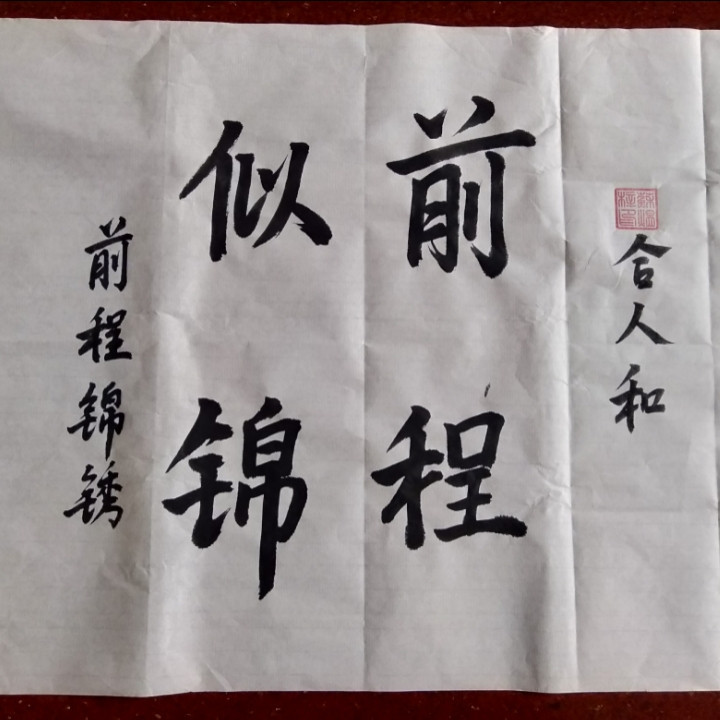 合人和
前程
似锦
前程锦锈